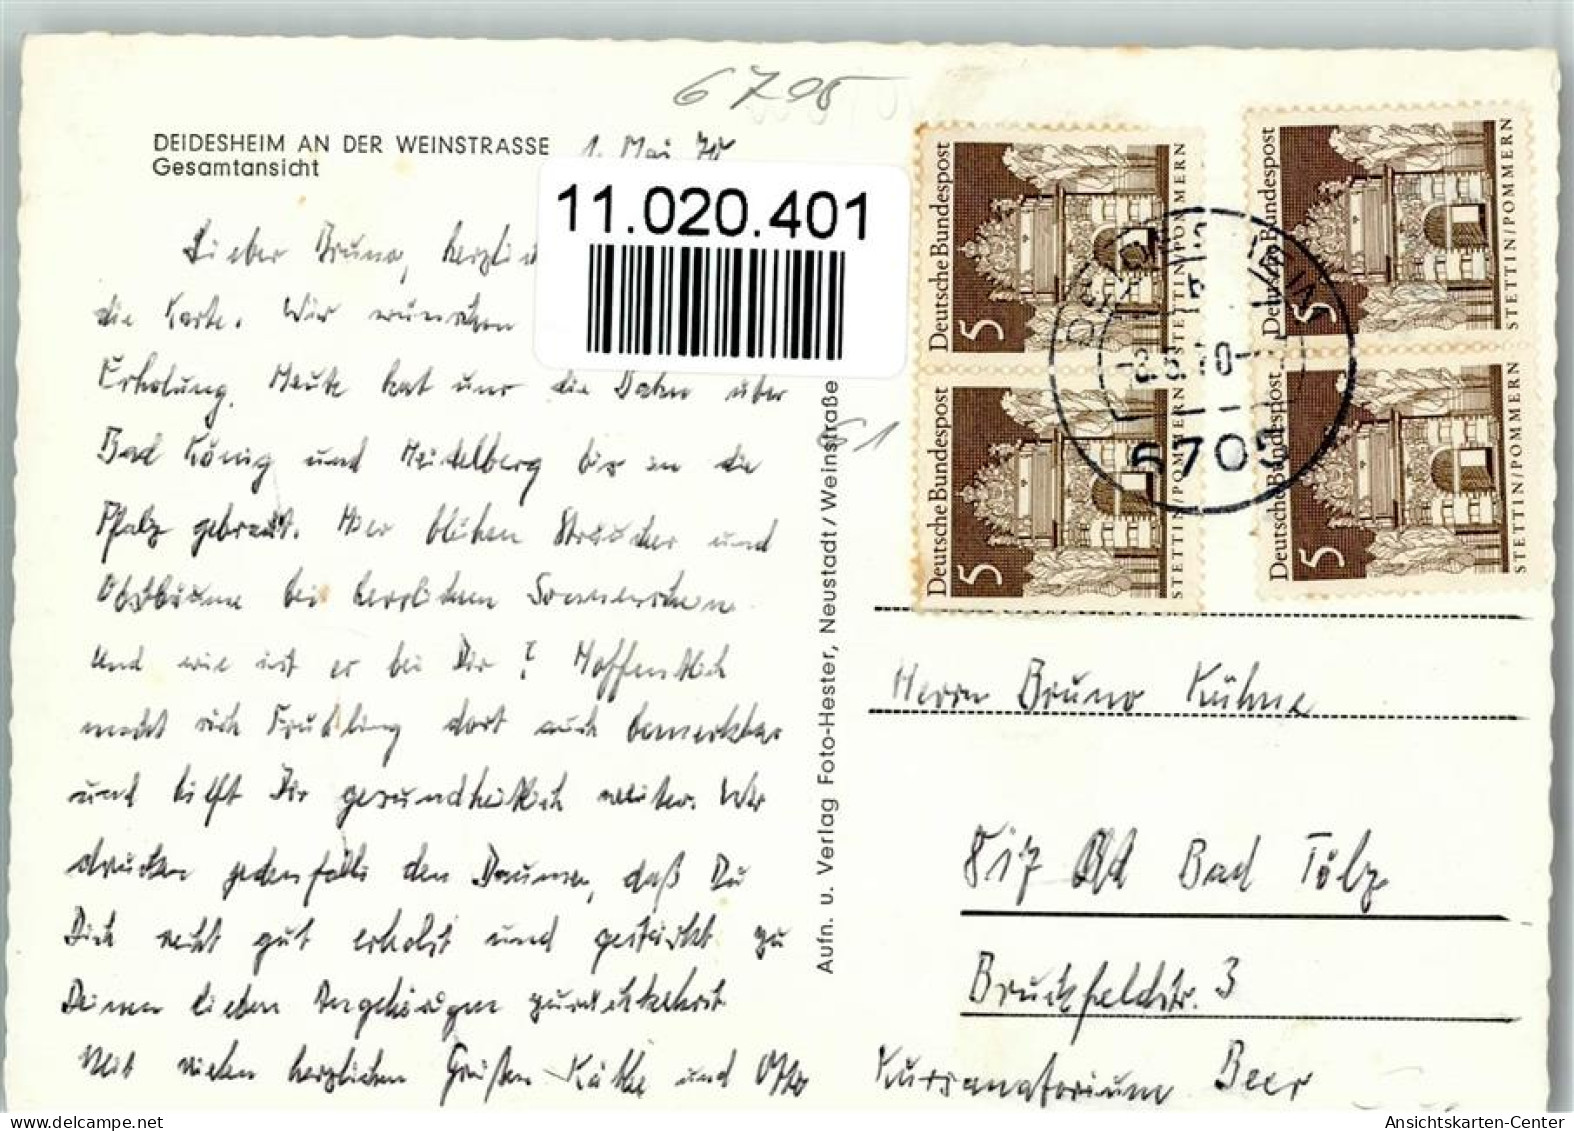 6705
DEIDESHEIM AN DER WEINSTRASSE
Gesamtansicht
1. Mai 70
11.020.401
Lieber Bruno, herzlich
die Karte. Wir wünschen
Erholung. Heute hat uns die Bahn über
Bad König und Heidelberg bis in die
Pfalz gebracht. Hier blühen Sträucher und
Obstbäume bei herrlichem Sonnenschein
Und wie ist er bei Dir? Hoffentlich
macht sich Frühling dort auch bemerkbar
und hilft Dir gesundheitlich weiter. Wir
drücken jedenfalls den Daumen, daß Du
Dich recht gut erholst und gestärkt zu
Deinen lieben Angehörigen zurückkehrst
Mit vielen herzlichen Grüßen Käthe und Otto
Aufn. u. Verlag Foto-Hester, Neustadt/Weinstraße
61
Deutsche Bundespost
5
STETTIN/POMMERN
Deutsche Bundespost
5
STETTIN/POMMERN
Deutsche Bundespost
5
STETTIN/POMMERN
Deutsche Bundespost
5
STETTIN/POMMERN
Herrn Bruno Kühne
817 Bad Tölz
Bruckfeldstr. 3
Kursanatorium Beer
Ansichtskarten-Center